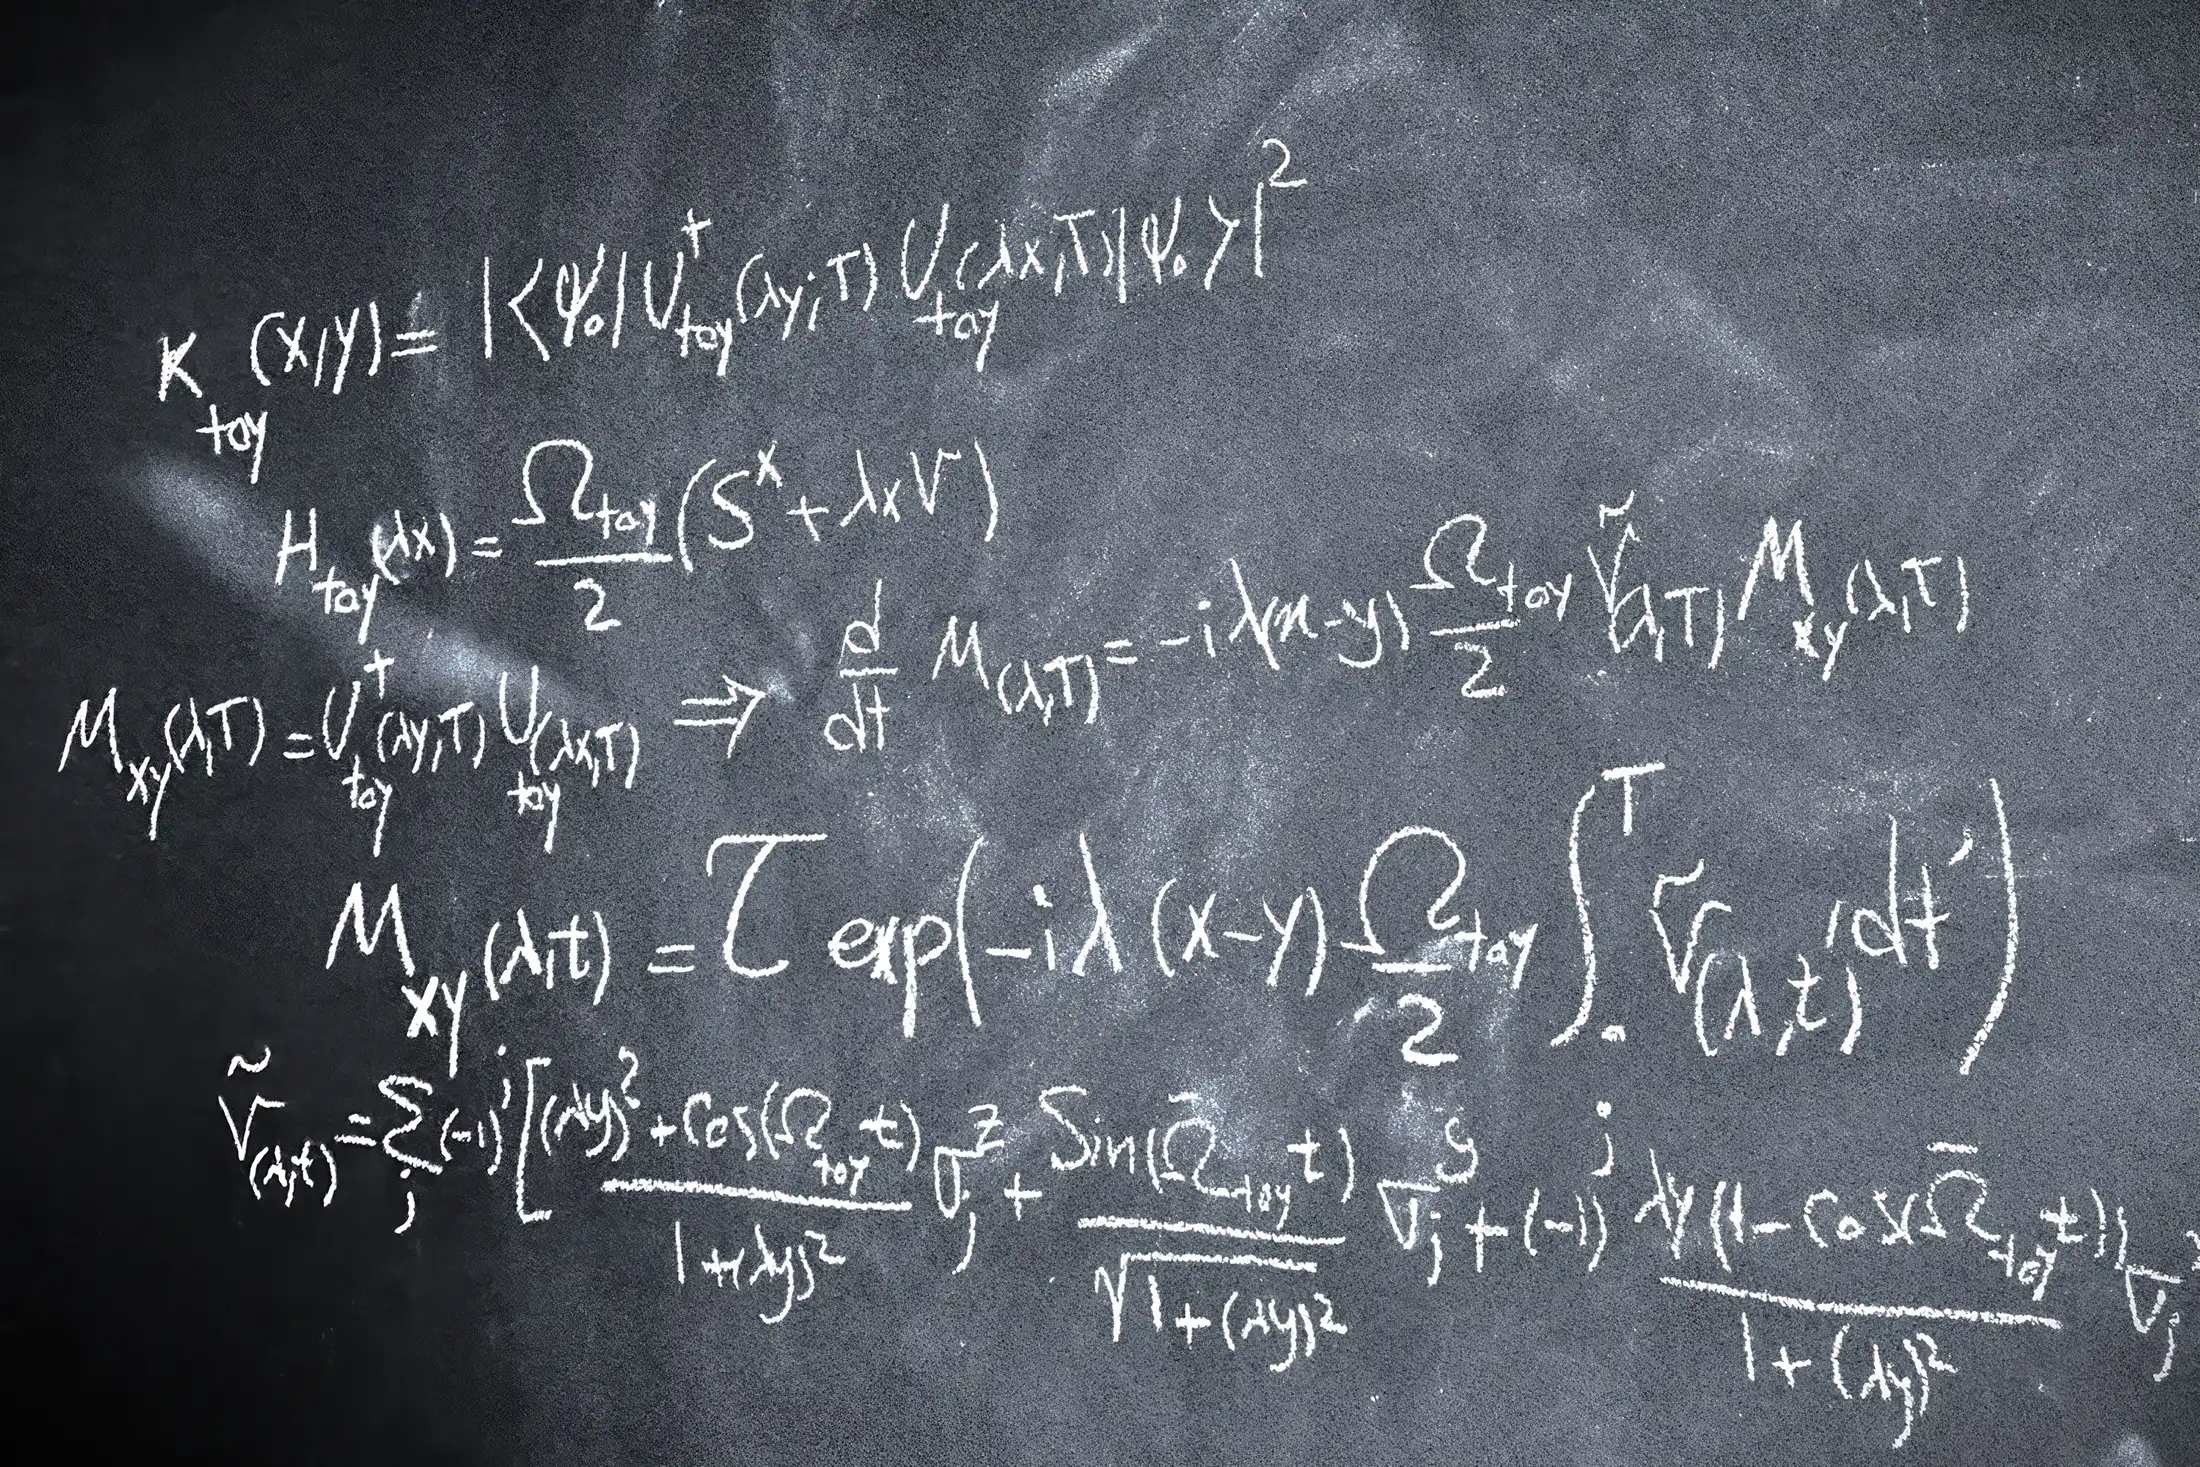 K_toy(x,y) = |<ψ₀|U†_toy(λy;T) U_toy(λx,T)|ψ₀>|²
H_toy(λx) = Ω_toy/2 (Sˣ + λxV)
M_xy(λ,T) = U†_toy(λy,T) U_toy(λx,T) ⇒ d/dt M(λ,T) = -iλ(x-y) Ω_toy/2 Ṽ(λ,T) M_xy(λ,T)
M_xy(λ,t) = T exp(-iλ(x-y) Ω_toy/2 ∫₀ᵀ Ṽ(λ,t') dt')
Ṽ(λ,t) = Σ_j (-1)^j [(λy)² + Cos(Ω̄_toy t) / 1+(λy)² σ_j^z + Sin(Ω̄_toy t) / √1+(λy)² σ_j^y + (-1)^j λy(1-Cos(Ω̄_toy t)) / 1+(λy)² σ_j